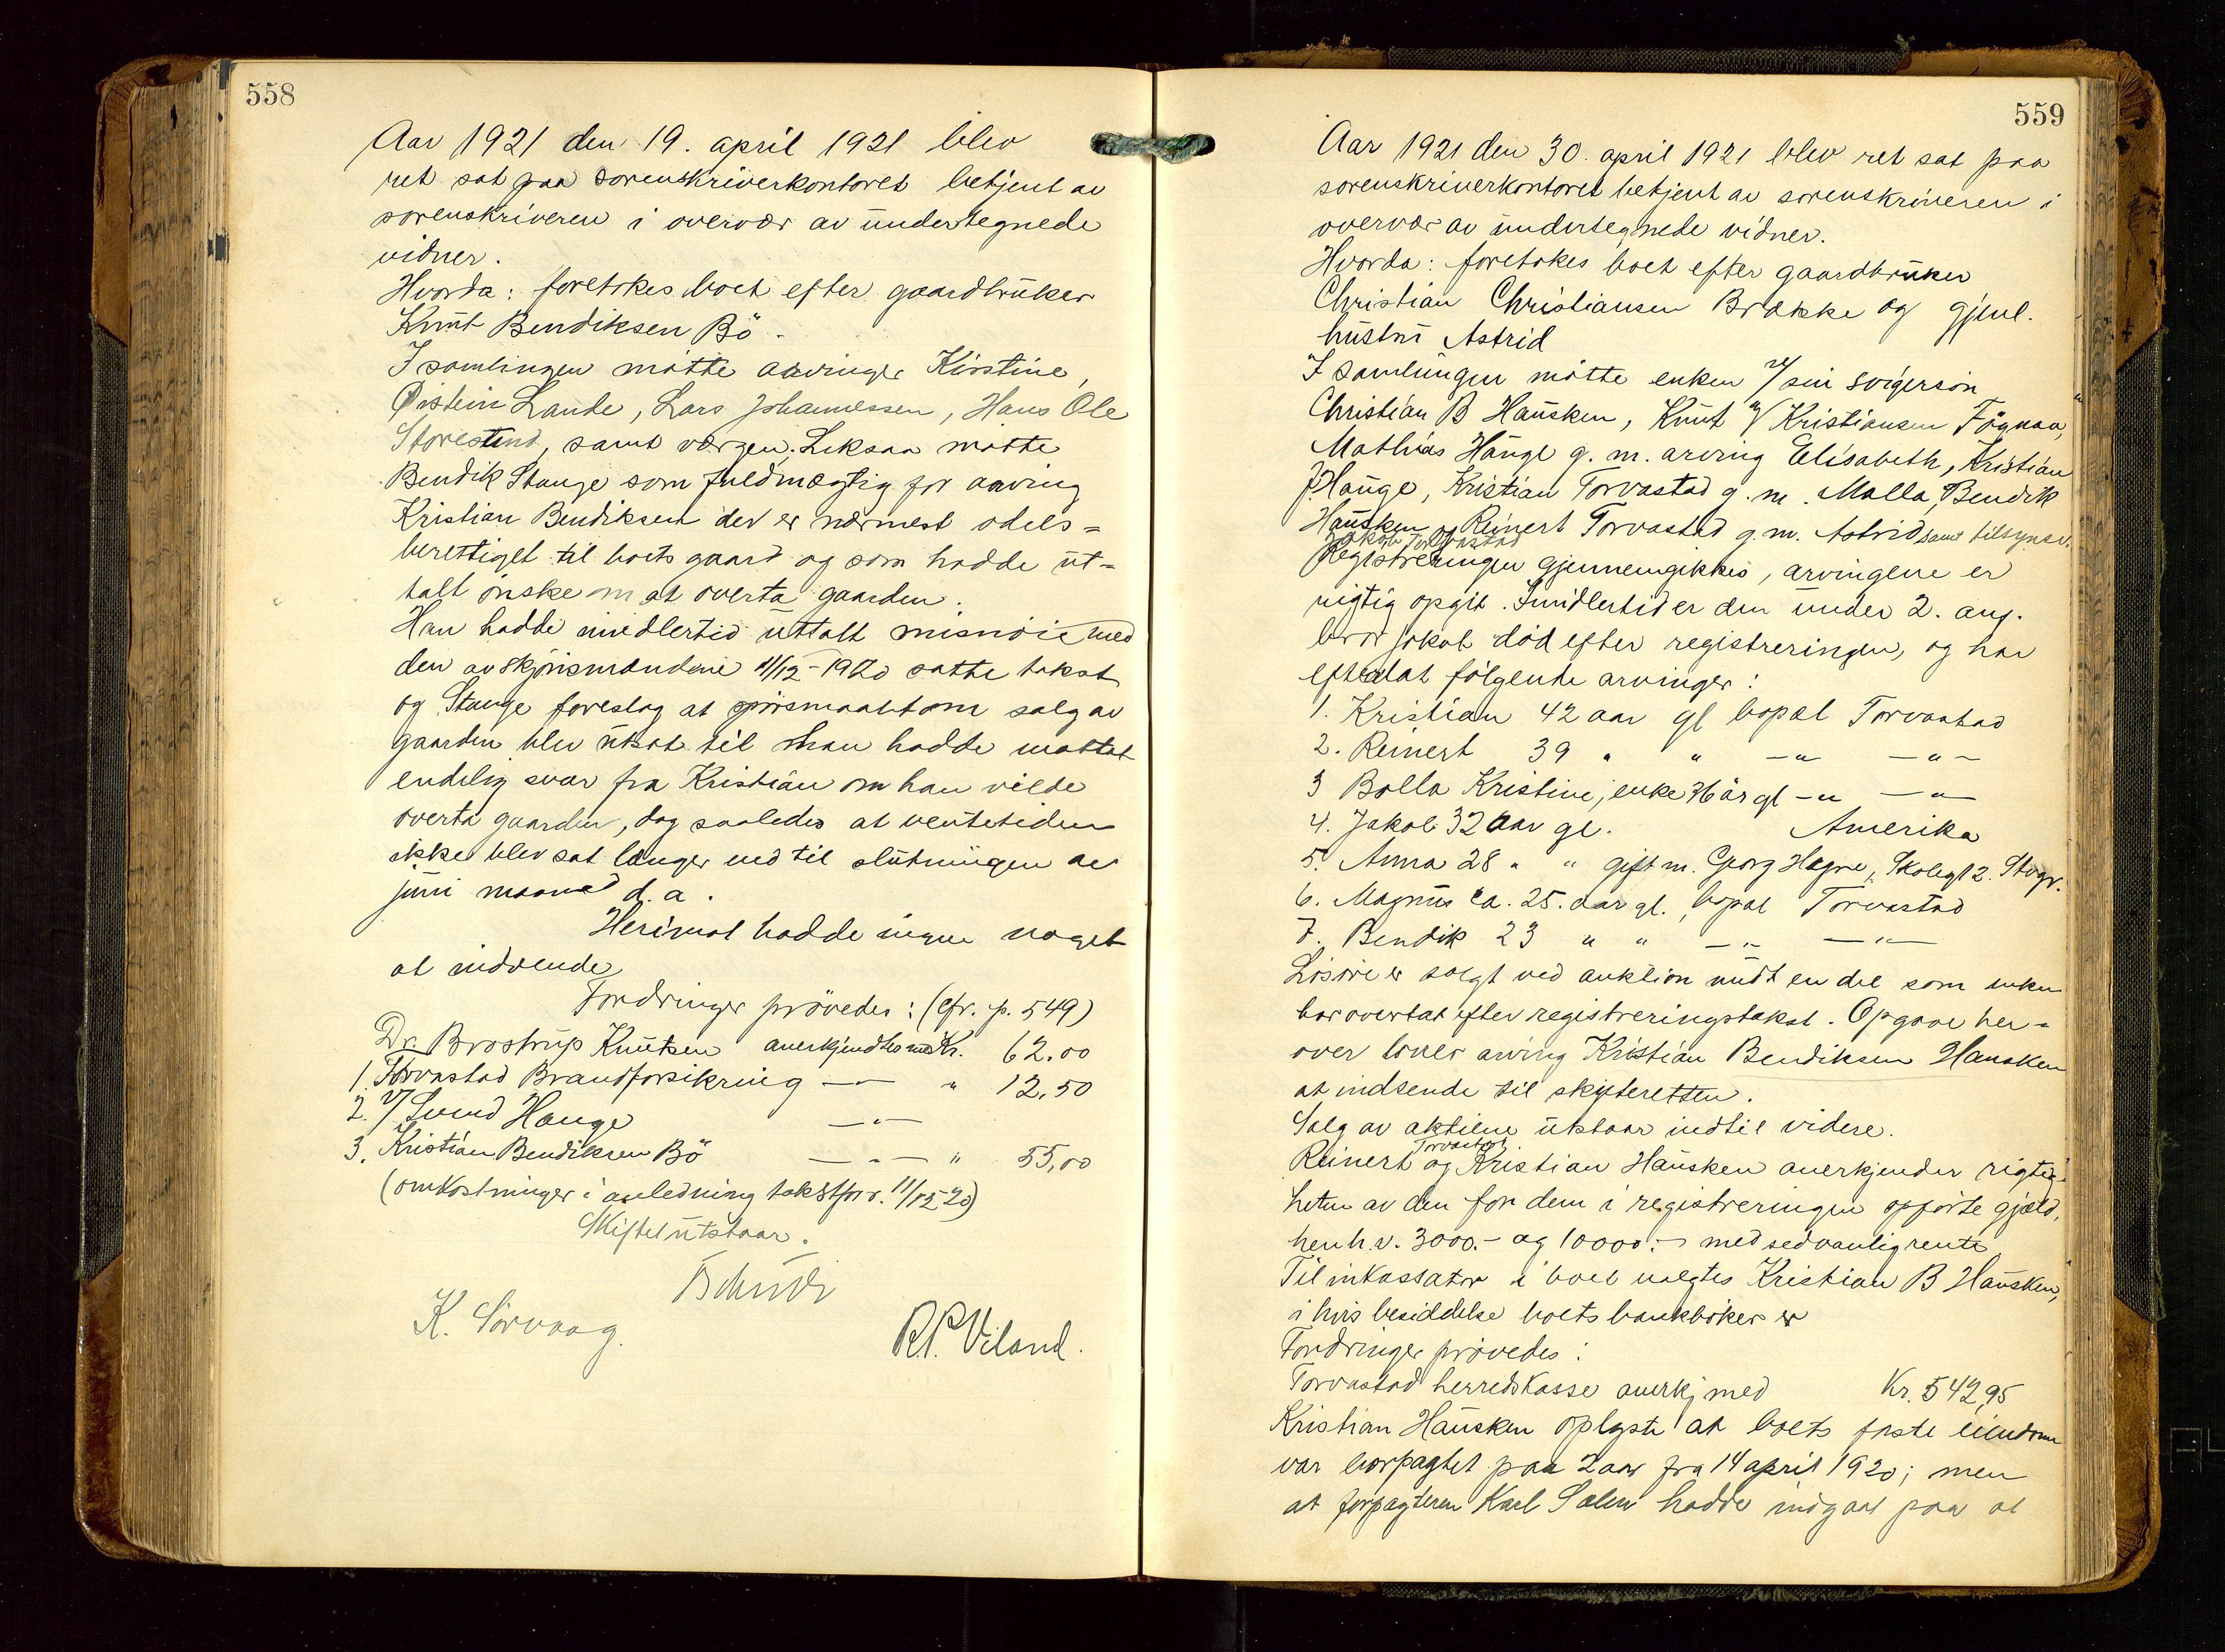 558
Aar 1921 den 19. april 1921 blev
ret sat paa sorenskriverkontoret betjent av
sorenskriveren i overvær av undertegnede
vidner.
Hvorda: foretokes boet efter gaardbruker
Knut Bendiksen Bö.
I samlingen mötte arvinger Kirstine,
Øistein Lande, Lars Johannessen, Hans Ole
Storesund, samt værgen. Likesaa mötte
Bendik Stange som fuldmægtig for arving
Kristian Bendiksen der er nærmest odels=
berettiget til boets gaard og som hadde ut=
talt önske om at overta gaarden.
Han hadde imidlertid uttalt misnöie med
den av skjönsmændene 11/12-1920 satte takst
og Stange foreslog at spörsmaalet om salg av
gaarden blev utsat til han hadde mottat
endelig svar fra Kristian om han vilde
overta gaarden, dog saaledes at ventetiden
ikke blev sat længer end til slutningen av
juni maaned d.a.
Herimot hadde ingen noget
at indvende
Fordringer prövedes: (cfr. p. 549)
Dr. Brostrup Knutsen anerkjendtes med Kr. 62.00
1. Torvastad Brandforsikring -"- " 12,50
2. v/ Svend Hauge -"-
3. Kristian Bendiksen Bö -"- " 55,00
(omkostninger i anledning takstforr. 11/12 20)
Skiftet utstaar.
K. Sörvaag.
R.P. Viland.
559
Aar 1921 den 30. april 1921 blev ret sat paa
sorenskriverkontoret betjent av sorenskriveren i
overvær av undertegnede vidner.
Hvorda: foretokes boet efter gaardbruker
Christian Christiansen Brække og gjenl.
hustru Astrid
I samlingen mötte enken v/ sin svigersön
Christian B Hausken, Knut Kristiansen
Mathias Hauge g. m. arving Elisabeth, Kristian
J. Hauge, Kristian Torvastad g. m. Malla, Bendik
Hausken og Reinert Torvastad g.m. Astrid samt tilsynsv.
Jakob Torvastad
Registreringen gjennemgikkes, arvingene er
rigtig opgit. Imidlertid er den under 2. ang.
bror Jakob död efter registreringen, og har
efterlat fölgende arvinger:
1. Kristian 42 aar gl bopæl Torvastad
2. Reinert 39 " " -"- -"-
3 Bolla Kristine, enke 36 år gl -"- -"-
4. Jakob 32 aar gl. Amerika
5. Anna 28 " " gift m. Georg Hagne, Skolegt 2. Stvgr.
6. Magnus ca. 25. aar gl., bopæl Torvastad
7. Bendik 23 " " -"- -"-
Lösöre er solgt ved auktion undt en del som enken
har overtat efter registreringstakst. Opgave her=
over lover arving Kristian Bendiksen Hausken
at indsende til skifteretten.
Salg av aktiene utstaar indtil videre.
Torvastad
Reinert og Kristian Hausken anerkjender rigtig=
heten av den for dem i registreringen opförte gjæld,
henh.v. 3000.- og 10000.- med sedvanlig rente
Til inkassator i boet valgtes Kristian B Hausken,
i hvis besiddelse boets bankböker er
Fordringer prövedes:
Torvastad herredskasse anerkj med Kr. 542,95
Kristian Hausken oplyste at boets faste eiendom
var borpagtet paa 2 aar fra 14 april 1920; men
at forpagteren Karl Salen hadde indgaat paa at